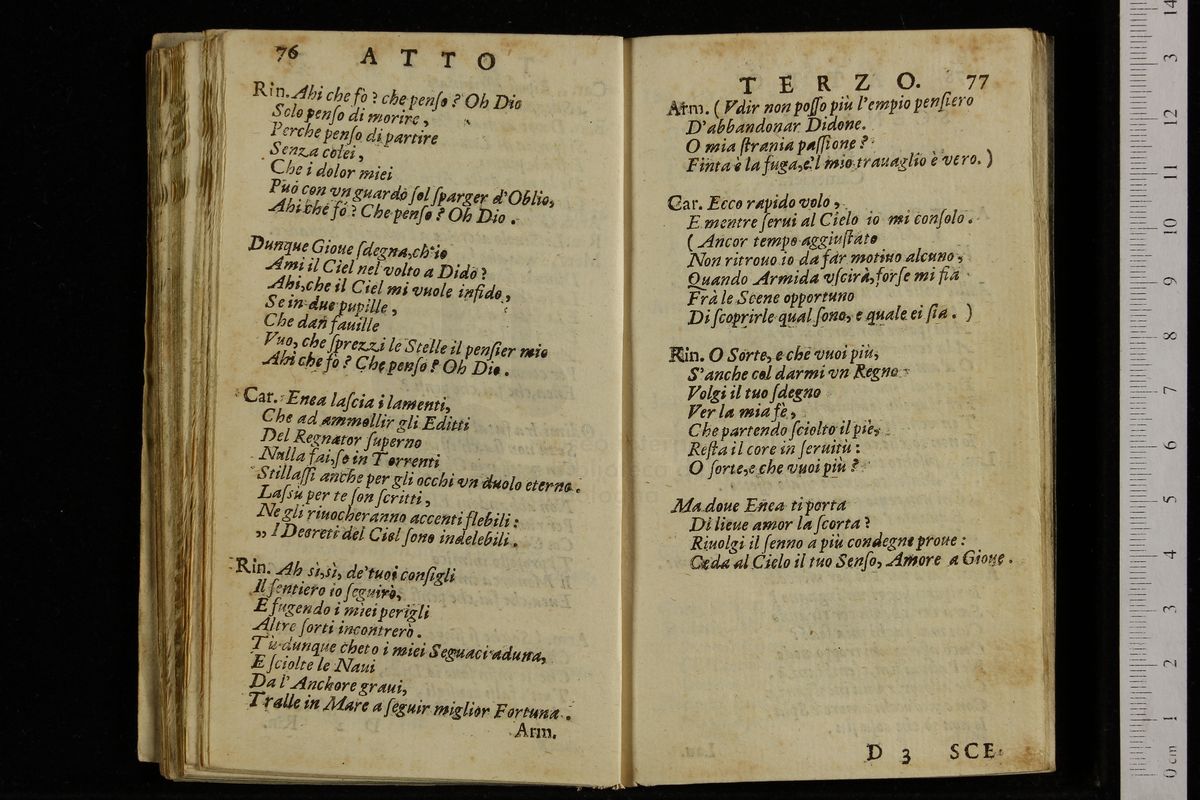 76 ATTO
Rin. Ahi che fò? che penſo? Oh Dio
Solo penſo di morire,
Perche penſo di partire
Senza colei,
Che i dolor miei
Può con vn guardo ſol ſparger d'Oblio,
Ahi che fò? Che penſo? Oh Dio.
Dunque Gioue ſdegna, ch'io
Ami il Ciel nel volto a Dido?
Ahi, che il Ciel mi vuole infido,
Se in due pupille,
Che dan fauille
Vuo, che ſprezzi le Stelle il penſier mio
Ahi che fò? Che penſo? Oh Dio.
Car. Enea laſcia i lamenti,
Che ad ammollir gli Editti
Del Regnator ſuperno
Nulla fai, ſe in Torrenti
Stillaſſi anche per gli occhi vn duolo eterno.
Laſsù per te ſon ſcritti,
Ne gli riuocheranno accenti flebili:
„ I Decreti del Ciel ſono indelebili.
Rin. Ah sì, sì, de' tuoi conſigli
Il ſentiero io ſeguirò,
E fugendo i miei perigli
Altre ſorti incontrerò.
Tù dunque cheto i miei Seguaci aduna,
E ſciolte le Naui
Da l'Anchore graui,
Tralle in Mare a ſeguir miglior Fortuna.
Arm.
TERZO. 77
Arm. (Vdir non poſſo più l'empio penſiero
D'abbandonar Didone.
O mia ſtrania paſſione?
Finta è la fuga, e'l mio trauaglio è vero.)
Car. Ecco rapido volo,
E mentre ſerui al Cielo io mi conſolo.
(Ancor tempo aggiuſtato
Non ritrouo io da far motiuo alcuno,
Quando Armida vſcirà, forſe mi fia
Frà le Scene opportuno
Di ſcoprirle qual ſono, e quale ei ſia.)
Rin. O Sorte, e che vuoi più,
S'anche col darmi vn Regno
Volgi il tuo ſdegno
Ver la mia fè,
Che partendo ſciolto il piè,
Reſta il core in ſeruitù:
O ſorte, e che vuoi più?
Ma doue Enea ti porta
Di lieue amor la ſcorta?
Riuolgi il ſenno a più condegne proue:
Ceda al Cielo il tuo Senſo, Amore a Gioue.
D 3 SCE-